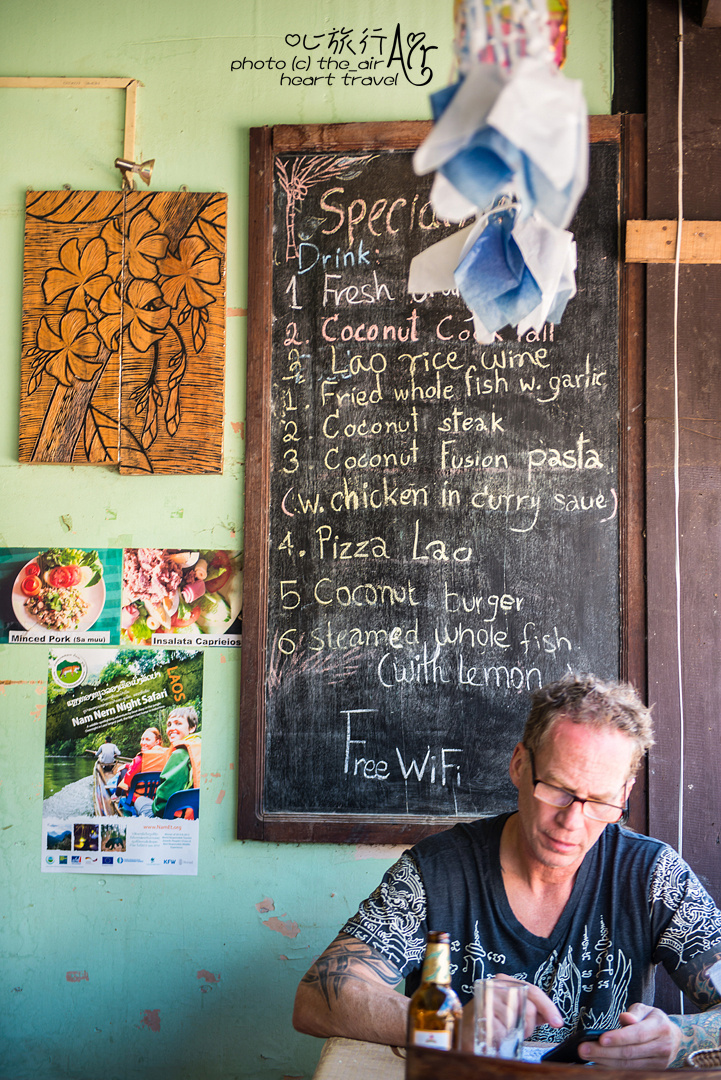 心旅行
photo (c) the_air
heart travel
Air
Special
Drink:
1 Fresh
2. Coconut Cocktail
3 Lao rice wine
1. Fried whole fish w. garlic
2. Coconut steak
3. Coconut Fusion pasta
(w. chicken in curry saue)
4. Pizza Lao
5 Coconut burger
6 steamed whole fish
(with lemon )
Free WiFi
Minced Pork (Sa muu)
Insalata Caprieios
LAOS
Nam Nern Night Safari
KFW